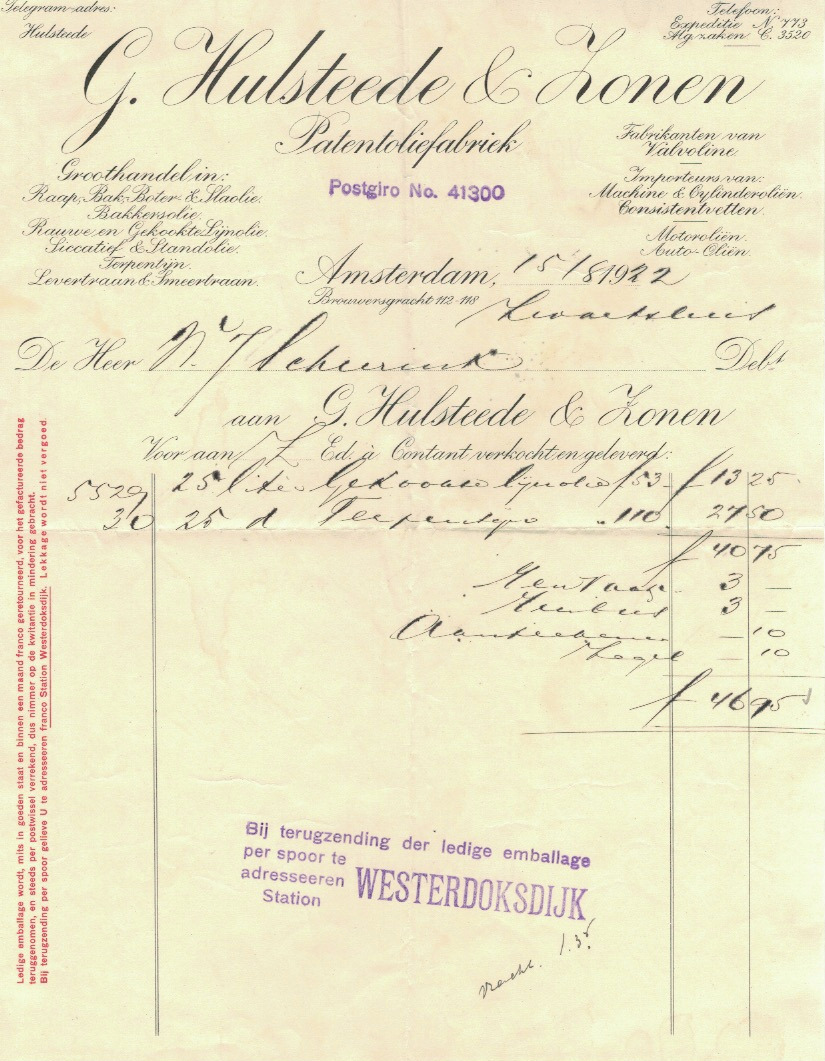 Telegram-adres:
Hulsteede
Telefoon:
Expeditie N 773
Alg. zaken C. 3520
G. Hulsteede & Zonen
Patentoliefabriek
Postgiro No. 41300
Groothandel in:
Raap, Bak, Boter- & Slaolie.
Bakkersolie.
Rauwe en Gekookte Lijnolie.
Siccatief & Standolie.
Terpentijn.
Levertraan & Smeertraan.
Fabrikanten van
Valvoline.
Importeurs van:
Machine & Cylinderoliën.
Consistentvetten.
Motoroliën.
Auto-Oliën.
Amsterdam, 15/8 1922
Brouwersgracht 112-118
Zwartsluis
De Heer N. J Scheurink Debt.
aan G. Hulsteede & Zonen
Voor aan Z. Ed. à Contant verkocht en geleverd:
5529 25 liter Gekookte lijnolie f 53 f 13 25
30 25 d Terpentijn " 110 27 50
f 40 75
3 —
3 —
— 10
Zegel — 10
f 46 95
Ledige emballage wordt, mits in goeden staat en binnen een maand franco geretourneerd, voor het gefactureerde bedrag
teruggenomen, en steeds per postwissel verrekend, dus nimmer op de kwitantie in mindering gebracht.
Bij terugzending per spoor gelieve U te adresseeren franco Station Westerdoksdijk. Lekkage wordt niet vergoed.
Bij terugzending der ledige emballage
per spoor te
adresseeren
Station
WESTERDOKSDIJK
vracht. 1.35